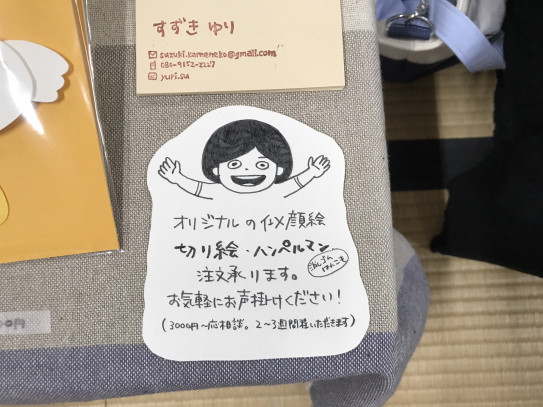 すずき ゆり
suzuki.kameneko@gmail.com
080-9152-2227
yuri.su
オリジナルの似顔絵
切り絵・ハンペルマン
消しゴム
はんこも
注文承ります。
お気軽にお声掛けください!
(3000円〜応相談。2〜3週間程いただきます)
00円